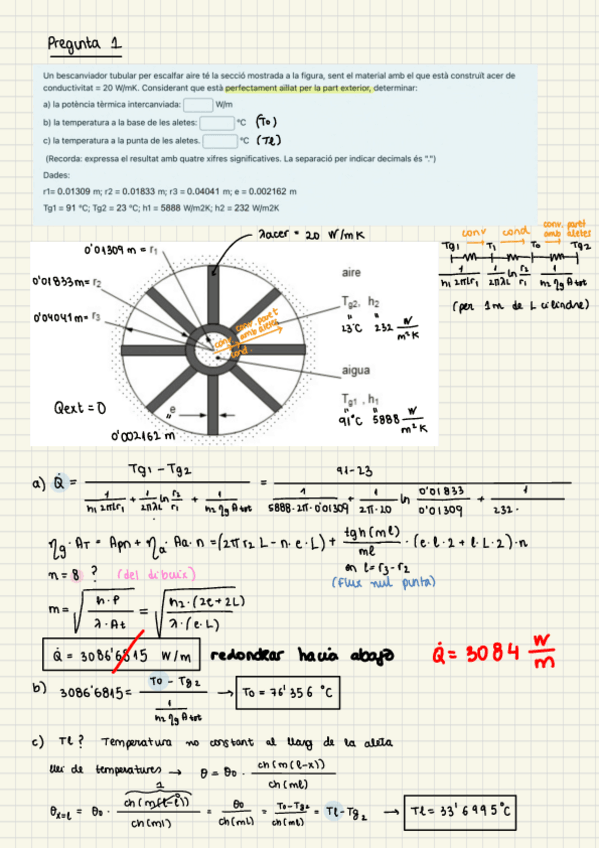 Pregunta 1
Un bescanviador tubular per escalfar aire té la secció mostrada a la figura, sent el material amb el que està construït acer de
conductivitat = 20 W/mK. Considerant que està perfectament aïllat per la part exterior, determinar:
a) la potència tèrmica intercanviada: W/m
b) la temperatura a la base de les aletes: °C (To)
c) la temperatura a la punta de les aletes. °C (Tl)
(Recorda: expressa el resultat amb quatre xifres significatives. La separació per indicar decimals és ".")
Dades:
r1= 0.01309 m; r2 = 0.01833 m; r3 = 0.04041 m; e = 0.002162 m
Tg1 = 91 °C; Tg2 = 23 °C; h1 = 5888 W/m2K; h2 = 232 W/m2K
λacer = 20 W/mK
conv cond conv. paret amb aletes
Tg1 T1 To Tg2
1/h1 2πlr1 1/2πλL ln r2/r1 1/h2 ηg Atot
(per 1m de L cilindre)
0'01309 m = r1
0'01833 m = r2
0'04041 m = r3
aire
Tg2, h2
23°C 232 W/m²K
conv. cond. conv. paret amb aletes
aigua
Tg1, h1
91°C 5888 W/m²K
Qext = 0
e
0'002162 m
a) Q̇ = (Tg1 - Tg2) / (1/h1 2πLr1 + 1/2πλL ln r2/r1 + 1/h2 ηg Atot) = (91-23) / (1/5888·2π·0'01309 + 1/2π·20 ln 0'01833/0'01309 + 1/232·
ηg · AT = Apn + ηa · Aa · n = (2π r2 L - n · e · L) + tgh(ml)/ml · (e·L·2 + l·L·2) · n
en l = r3 - r2
n = 8 ? (del dibuix) (flux nul punta)
m = √(h·P / λ·At) = √(h2·(2e+2L) / λ·(e·L))
Q̇ = 3086'6815 W/m redondear hacia abajo Q̇ = 3084 W/m
b) 3086'6815 = (To - Tg2) / (1/h2 ηg Atot) → To = 76'356 °C
c) Tl? Temperatura no constant al llarg de la aleta
llei de temperatures → θ = θo · ch(m(l-x)) / ch(ml)
1
θx=l = θo · ch(m(l-l)) / ch(ml) = θo / ch(ml) = To-Tg2 / ch(ml) = Tl-Tg2 → Tl = 33'6995°C